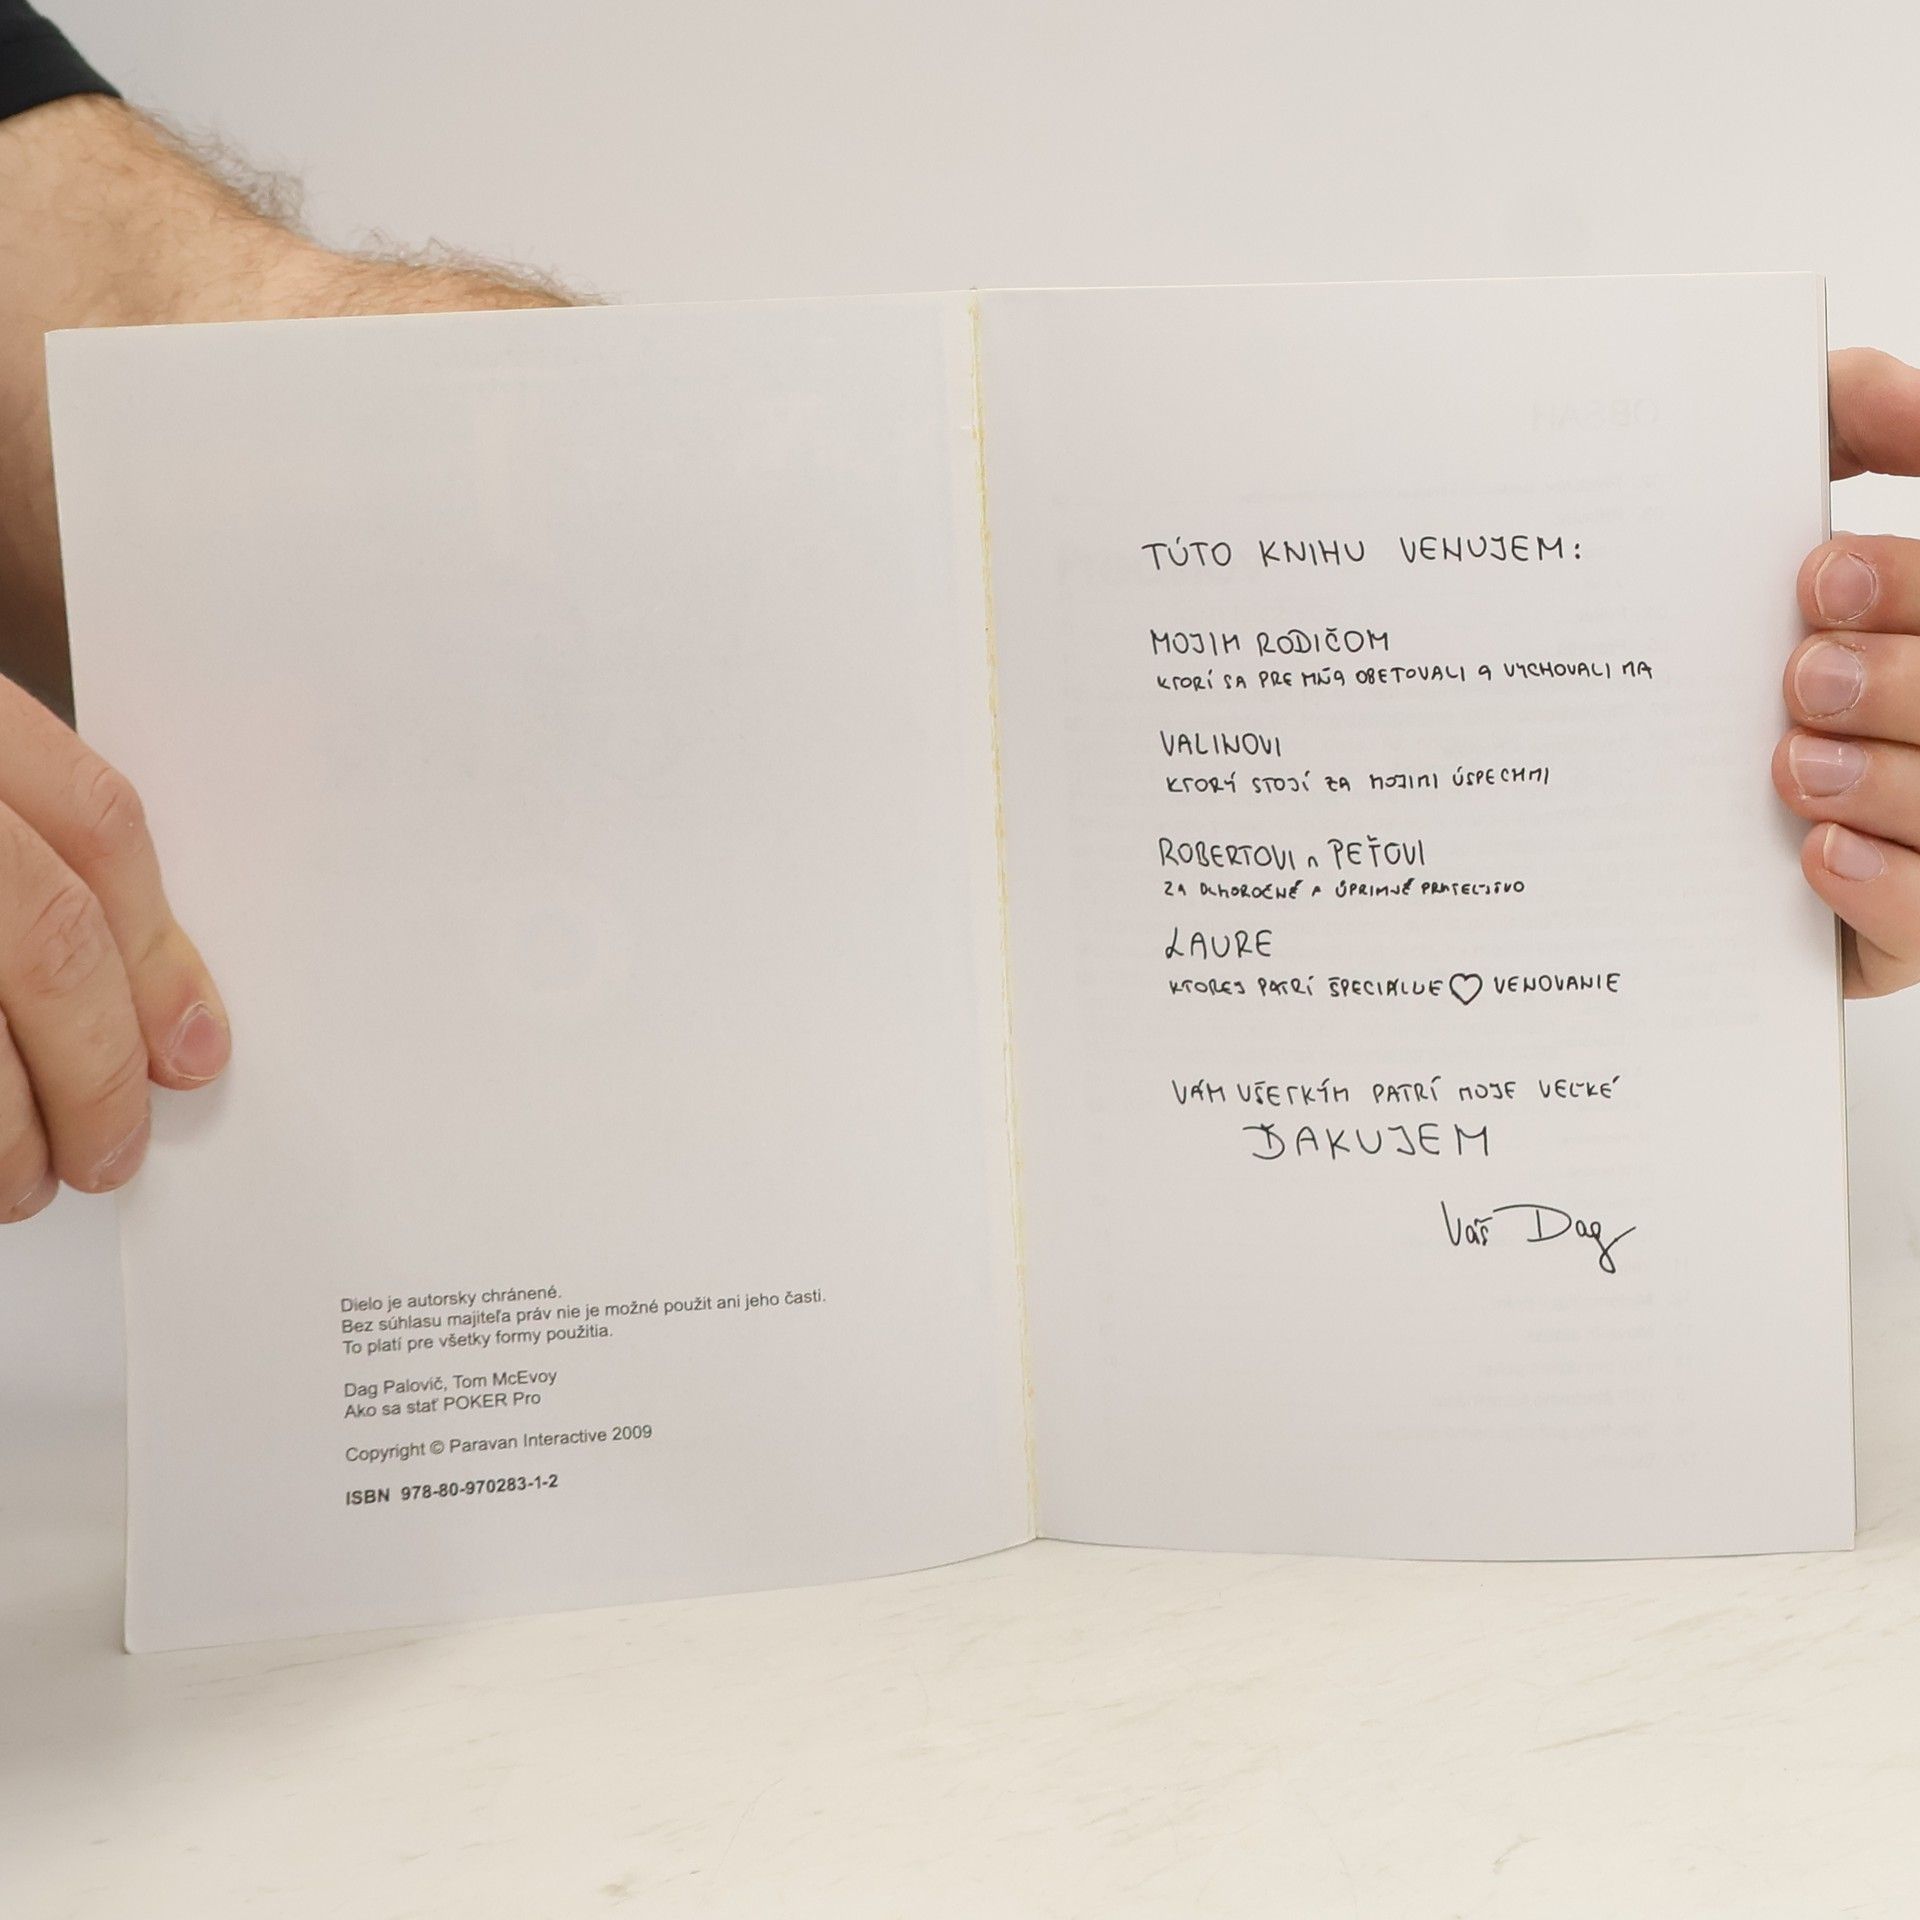 Dielo je autorsky chránené.
Bez súhlasu majiteľa práv nie je možné použit ani jeho časti.
To platí pre všetky formy použitia.
Dag Palovič, Tom McEvoy
Ako sa stať POKER Pro
Copyright © Paravan Interactive 2009
ISBN 978-80-970283-1-2
TÚTO KNIHU VENUJEM:
MOJIM RODIČOM
KTORÍ SA PRE MŇA OBETOVALI A VYCHOVALI MA
VALINOVI
KTORÝ STOJÍ ZA MOJIMI ÚSPECHMI
ROBERTOVI A PEŤOVI
ZA DLHOROČNÉ A ÚPRIMNÉ PRIATEĽSTVO
LAURE
KTOREJ PATRÍ ŠPECIÁLNE ♡ VENOVANIE
VÁM VŠETKÝM PATRÍ MOJE VEĽKÉ
ĎAKUJEM
Váš Dag
OBSAH